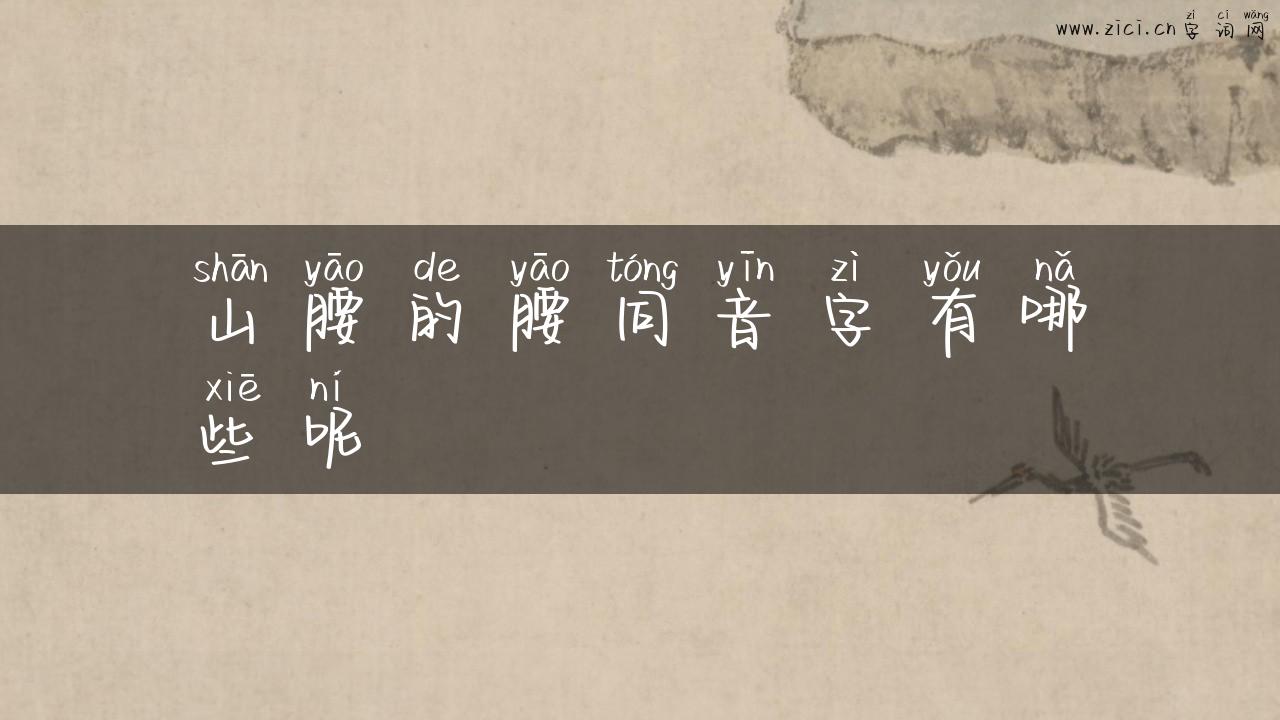 zì cí wǎng
www.zici.cn 字 词 网
shān yāo de yāo tóng yīn zì yǒu nǎ
山 腰 的 腰 同 音 字 有 哪
xiē ní
些 呢